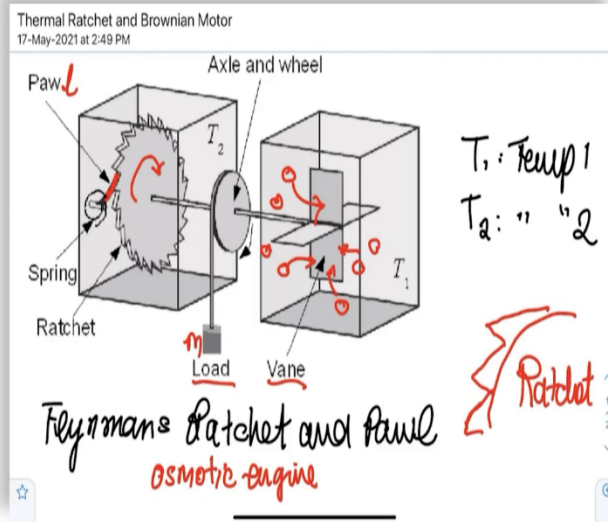 Thermal Ratchet and Brownian Motor
17-May-2021 at 2:49 PM
Axle and wheel
Pawl
T2
T1 : Temp 1
T2 : " " 2
T1
Spring
Ratchet
m
Load
Vane
Ratchet
Feynmans Ratchet and Pawl
Osmotic engine